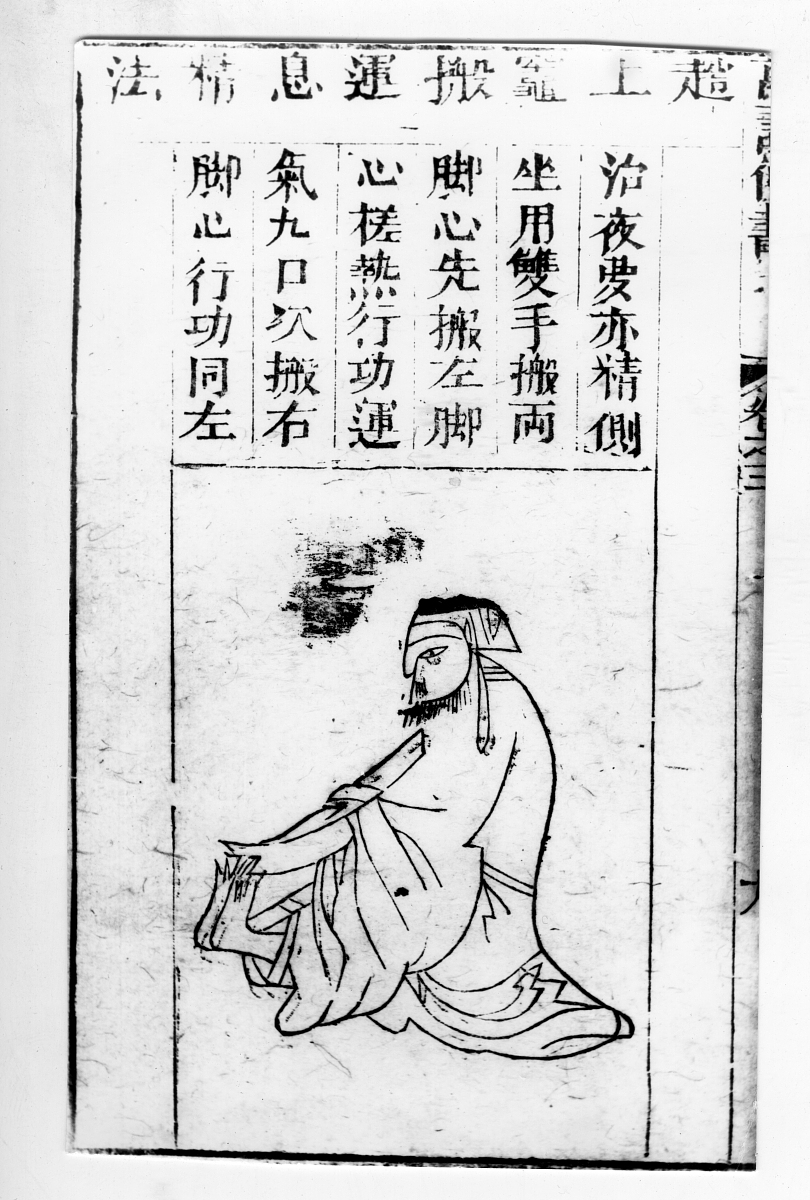 趙上竈搬運息精法
治夜夢亦精側
坐用雙手搬両
脚心先搬左脚
心槎熱行功運
氣九口次搬右
脚心行功同左
卷之三
九